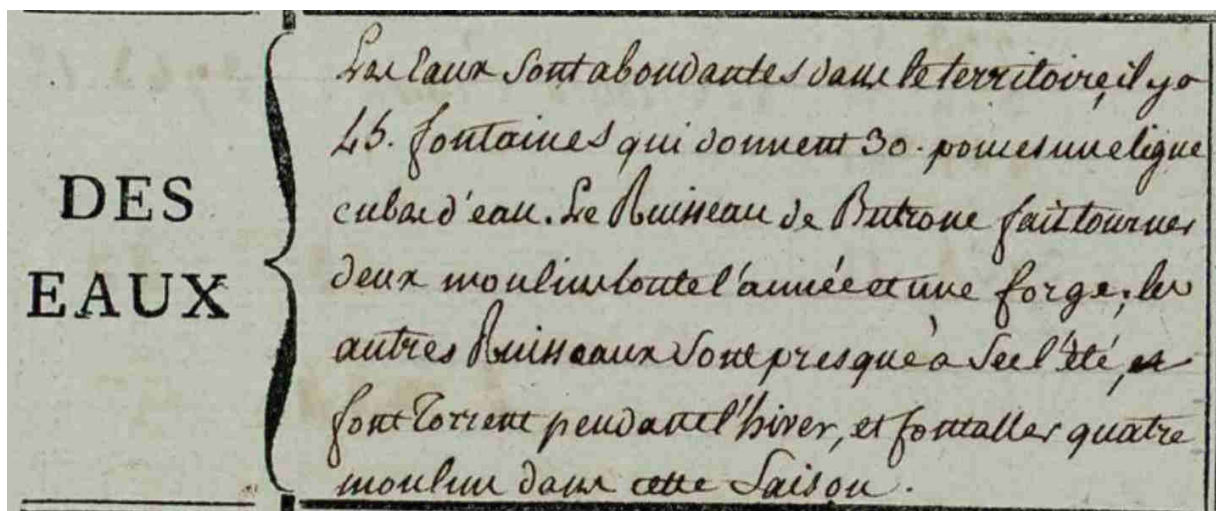 DES
EAUX
Les Eaux sont abondantes dans le territoire, il y a
45. fontaines qui donnent 30. pouces une ligne
cubes d'eau. Le Ruisseau de Butrone fait tourner
deux moulins toute l'année et une forge, les
autres Ruisseaux sont presqué à sec l'été, et
font Torrent pendant l'hiver, et font aller quatre
moulins dans cette Saison.